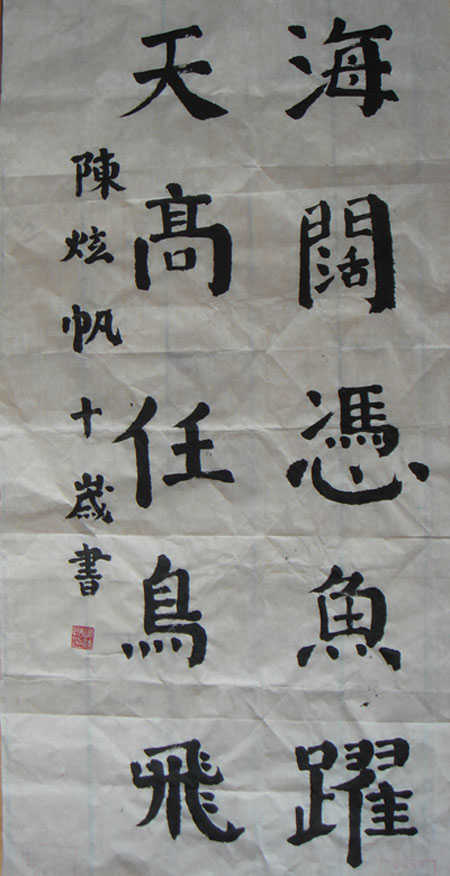 海闊憑魚躍
天高任鳥飛
陳炫帆十歲書